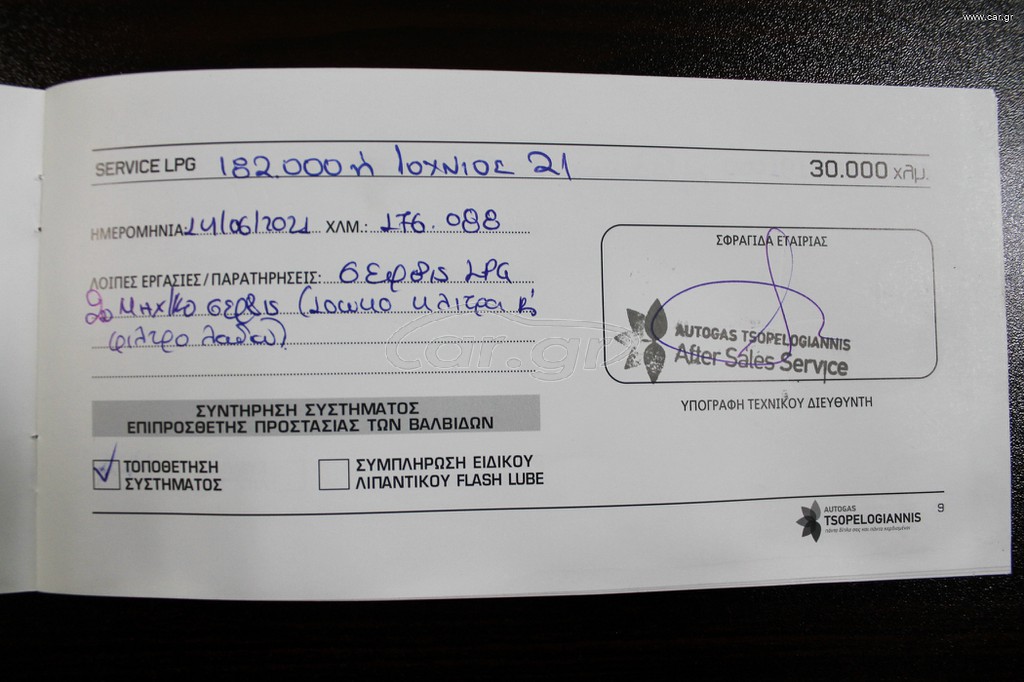 www.car.gr
SERVICE LPG 182.000 ή Ιούνιος 21 30.000 χλμ.
ΗΜΕΡΟΜΗΝΙΑ: 14/06/2021 ΧΛΜ.: 176.088
ΛΟΙΠΕΣ ΕΡΓΑΣΙΕΣ / ΠΑΡΑΤΗΡΗΣΕΙΣ: σερβις LPG
σερβις
φιλτρο λαδιου)
car.gr
ΣΦΡΑΓΙΔΑ ΕΤΑΙΡΙΑΣ
AUTOGAS TSOPELOGIANNIS
After Sales Service
ΥΠΟΓΡΑΦΗ ΤΕΧΝΙΚΟΥ ΔΙΕΥΘΥΝΤΗ
ΣΥΝΤΗΡΗΣΗ ΣΥΣΤΗΜΑΤΟΣ
ΕΠΙΠΡΟΣΘΕΤΗΣ ΠΡΟΣΤΑΣΙΑΣ ΤΩΝ ΒΑΛΒΙΔΩΝ
ΤΟΠΟΘΕΤΗΣΗ
ΣΥΣΤΗΜΑΤΟΣ
ΣΥΜΠΛΗΡΩΣΗ ΕΙΔΙΚΟΥ
ΛΙΠΑΝΤΙΚΟΥ FLASH LUBE
AUTOGAS
TSOPELOGIANNIS
9